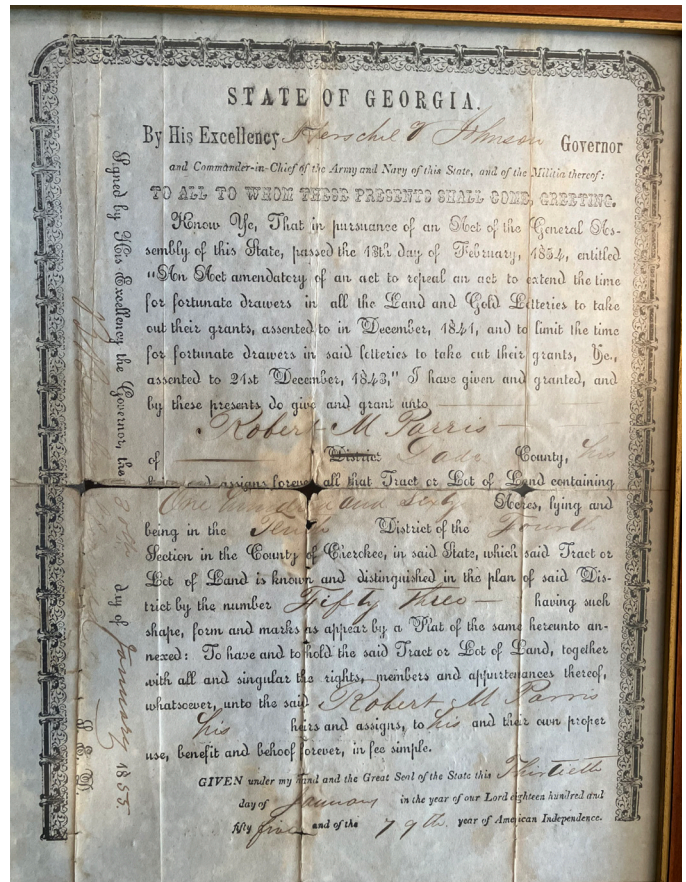 STATE OF GEORGIA.
By His Excellency Herschel V Johnson Governor
and Commander-in-Chief of the Army and Navy of this State, and of the Militia thereof:
TO ALL TO WHOM THESE PRESENTS SHALL COME, GREETING.
Know Ye, That in pursuance of an Act of the General As-
sembly of this State, passed the 18th day of February, 1854, entitled
"An Act amendatory of an act to repeal an act to extend the time
for fortunate drawers in all the Land and Gold Lotteries to take
out their grants, assented to in December, 1841, and to limit the time
for fortunate drawers in said lotteries to take out their grants, &c.,
assented to 21st December, 1843," I have given and granted, and
by these presents do give and grant unto
Robert M Parris
of District Dade County, his
heirs and assigns forever all that Tract or Lot of Land containing
One hundred and sixty Acres, lying and
being in the Tenth District of the Fourth
Section in the County of Cherokee, in said State, which said Tract or
Lot of Land is known and distinguished in the plan of said Dis-
trict by the number Fifty Three having such
shape, form and marks as appear by a Plat of the same hereunto an-
nexed: To have and to hold the said Tract or Lot of Land, together
with all and singular the rights, members and appurtenances thereof,
whatsoever, unto the said Robert M Parris
his heirs and assigns, to his and their own proper
use, benefit and behoof forever, in fee simple.
GIVEN under my hand and the Great Seal of the State this Thirtieth
day of January in the year of our Lord eighteen hundred and
fifty five and of the 79th year of American Independence.
Signed by His Excellency the Governor, this 30th day of January 1855.